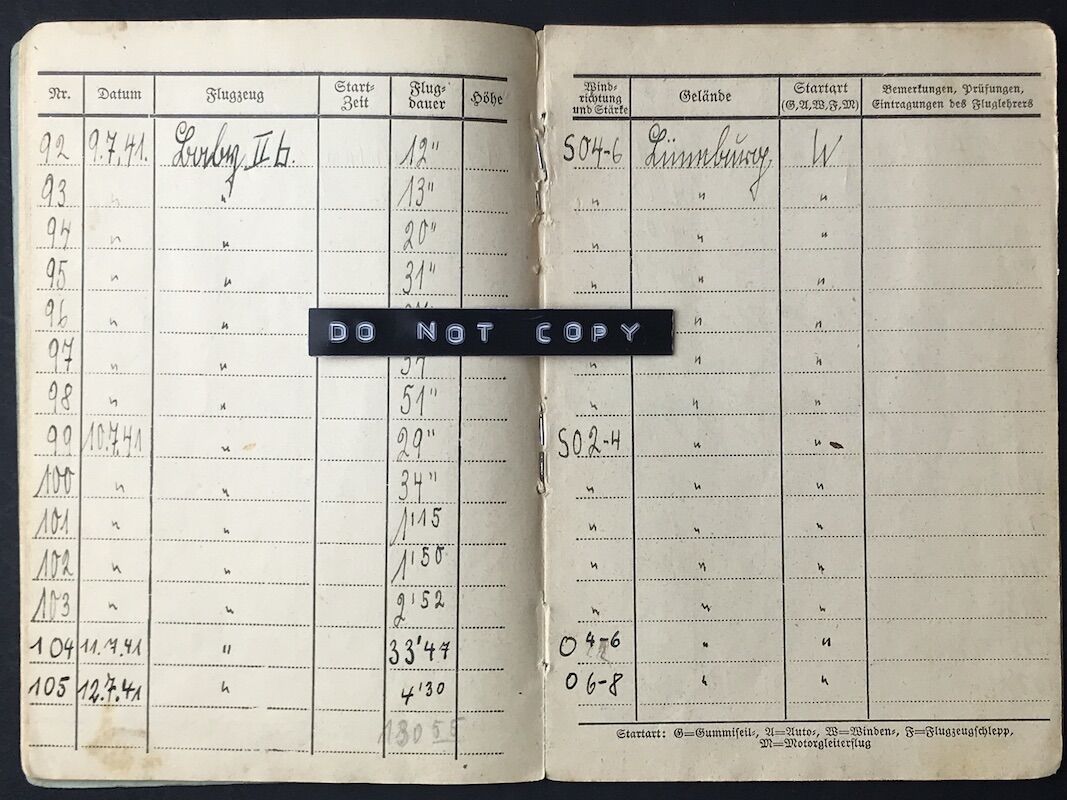 Nr. Datum Flugzeug Start-Zeit Flug-dauer Höhe Wind-richtung und Stärke Gelände Startart (G,A,W,F,M) Bemerkungen, Prüfungen, Eintragungen des Fluglehrers
92 9.7.41. Baby IIb. 12" SO4-6 Lüneburg W
93 " " 13" " " "
94 " " 20" " " "
95 " " 31" " " "
96 " " " "
DO NOT COPY
97 " " " " "
98 " " 51" " " "
99 10.7.41 " 29" SO2-4 " "
100 " " 34" " " "
101 " " 1'15 " " "
102 " " 1'50" " " "
103 " " 2'52 " " "
104 11.7.41 " 33'47 O 4-6 " "
105 12.7.41 " 4'30 O 6-8 " "
Startart: G=Gummiseil-, A=Auto-, W=Winden-, F=Flugzeugschlepp,
M=Motorgleiterflug